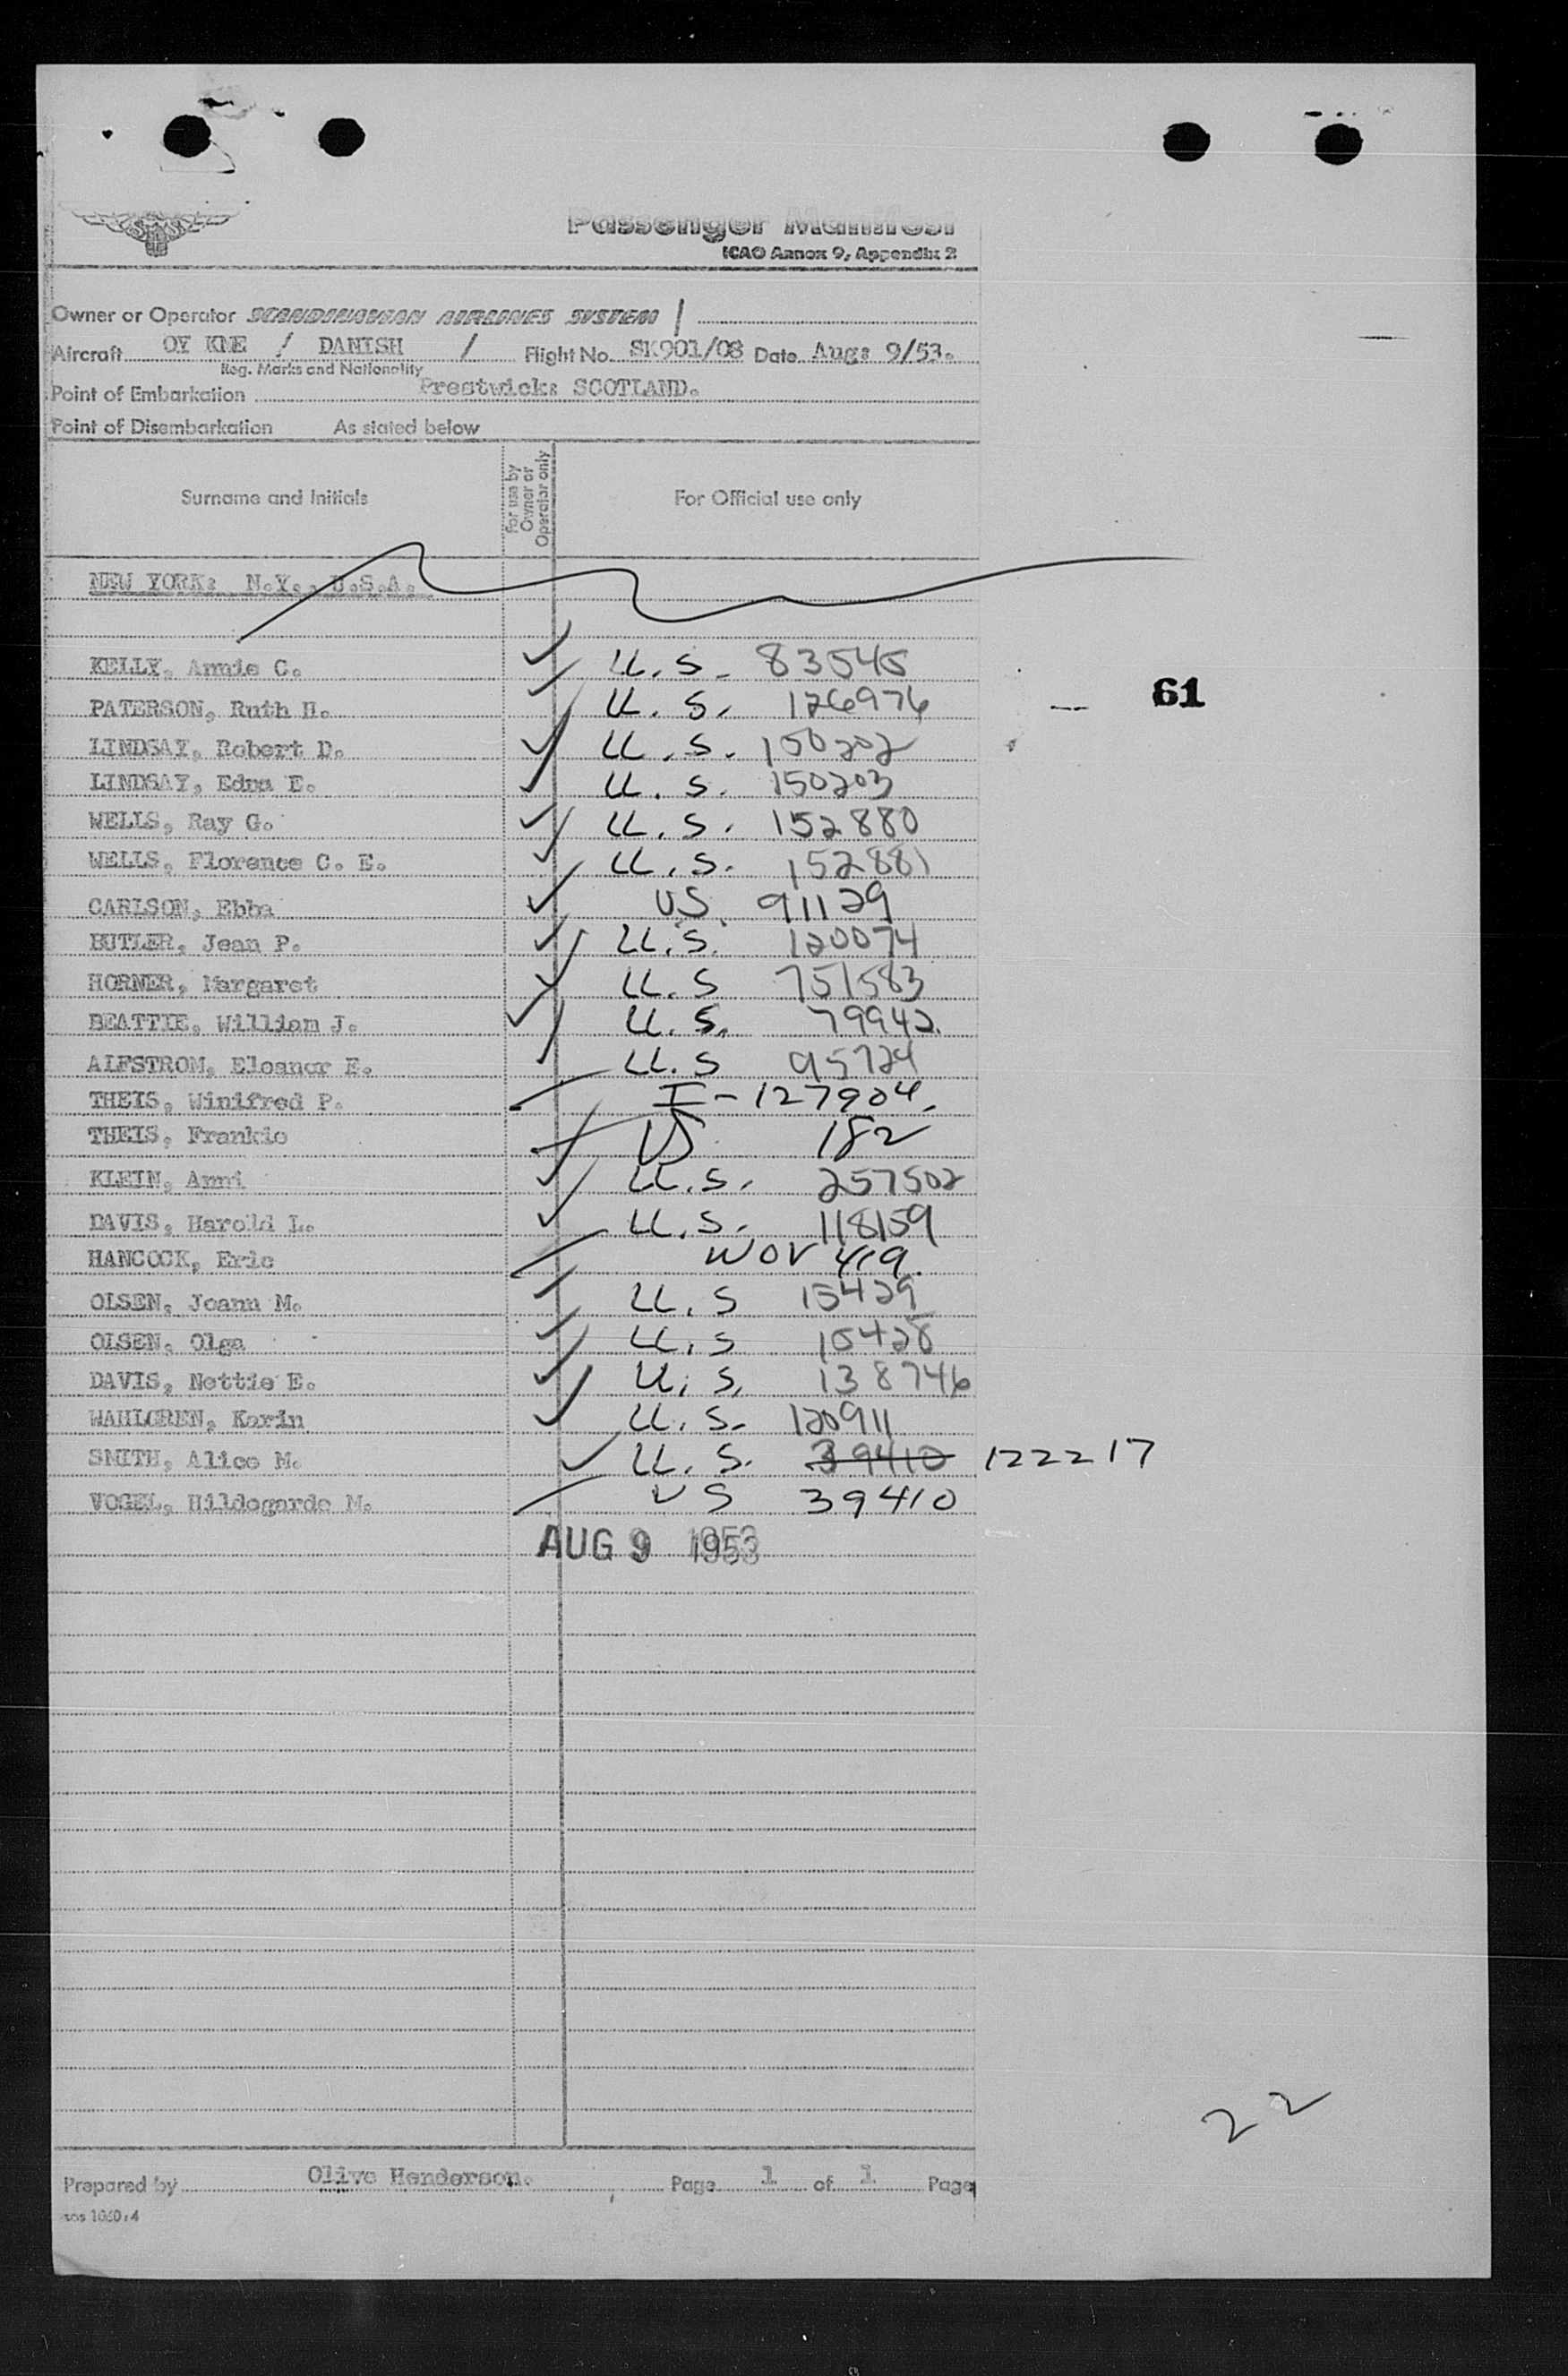 SAS
Passenger Manifest
ICAO Annex 9, Appendix 2
Owner or Operator SCANDINAVIAN AIRLINES SYSTEM
Aircraft OY KME / DANISH / Flight No. SK901/08 Date Aug: 9/53.
Reg. Marks and Nationality
Point of Embarkation Prestwick: SCOTLAND.
Point of Disembarkation As stated below
Surname and Initials For use by Owner or Operator only For Official use only
NEW YORK: N.Y., U.S.A.
KELLY, Annie C. U.S. 83545
PATERSON, Ruth H. U.S. 126976 61
LINDSAY, Robert D. U.S. 150202
LINDSAY, Edna E. U.S. 150203
WELLS, Ray G. U.S. 152880
WELLS, Florence C. E. U.S. 152881
CARLSON, Ebba US 91129
BUTLER, Jean P. U.S. 120074
HORNER, Margaret U.S 751583
BEATTIE, William J. U.S. 79942
ALFSTROM, Eleanor E. U.S 95724
THEIS, Winifred P. I-127904.
THEIS, Frankie US 182
KLEIN, Anni U.S. 257502
DAVIS, Harold L. U.S. 118159
HANCOCK, Eric 419
OLSEN, Joann M. U.S 15429
OLSEN, Olga U.S 15428
DAVIS, Nettie E. U.S. 138746
WAHLGREN, Karin U.S. 120911
SMITH, Alice M. U.S. 39410 122217
VOGEL, Hildegarde M. US 39410
AUG 9 1953
22
Prepared by Olive Henderson. Page 1 of 1 Page